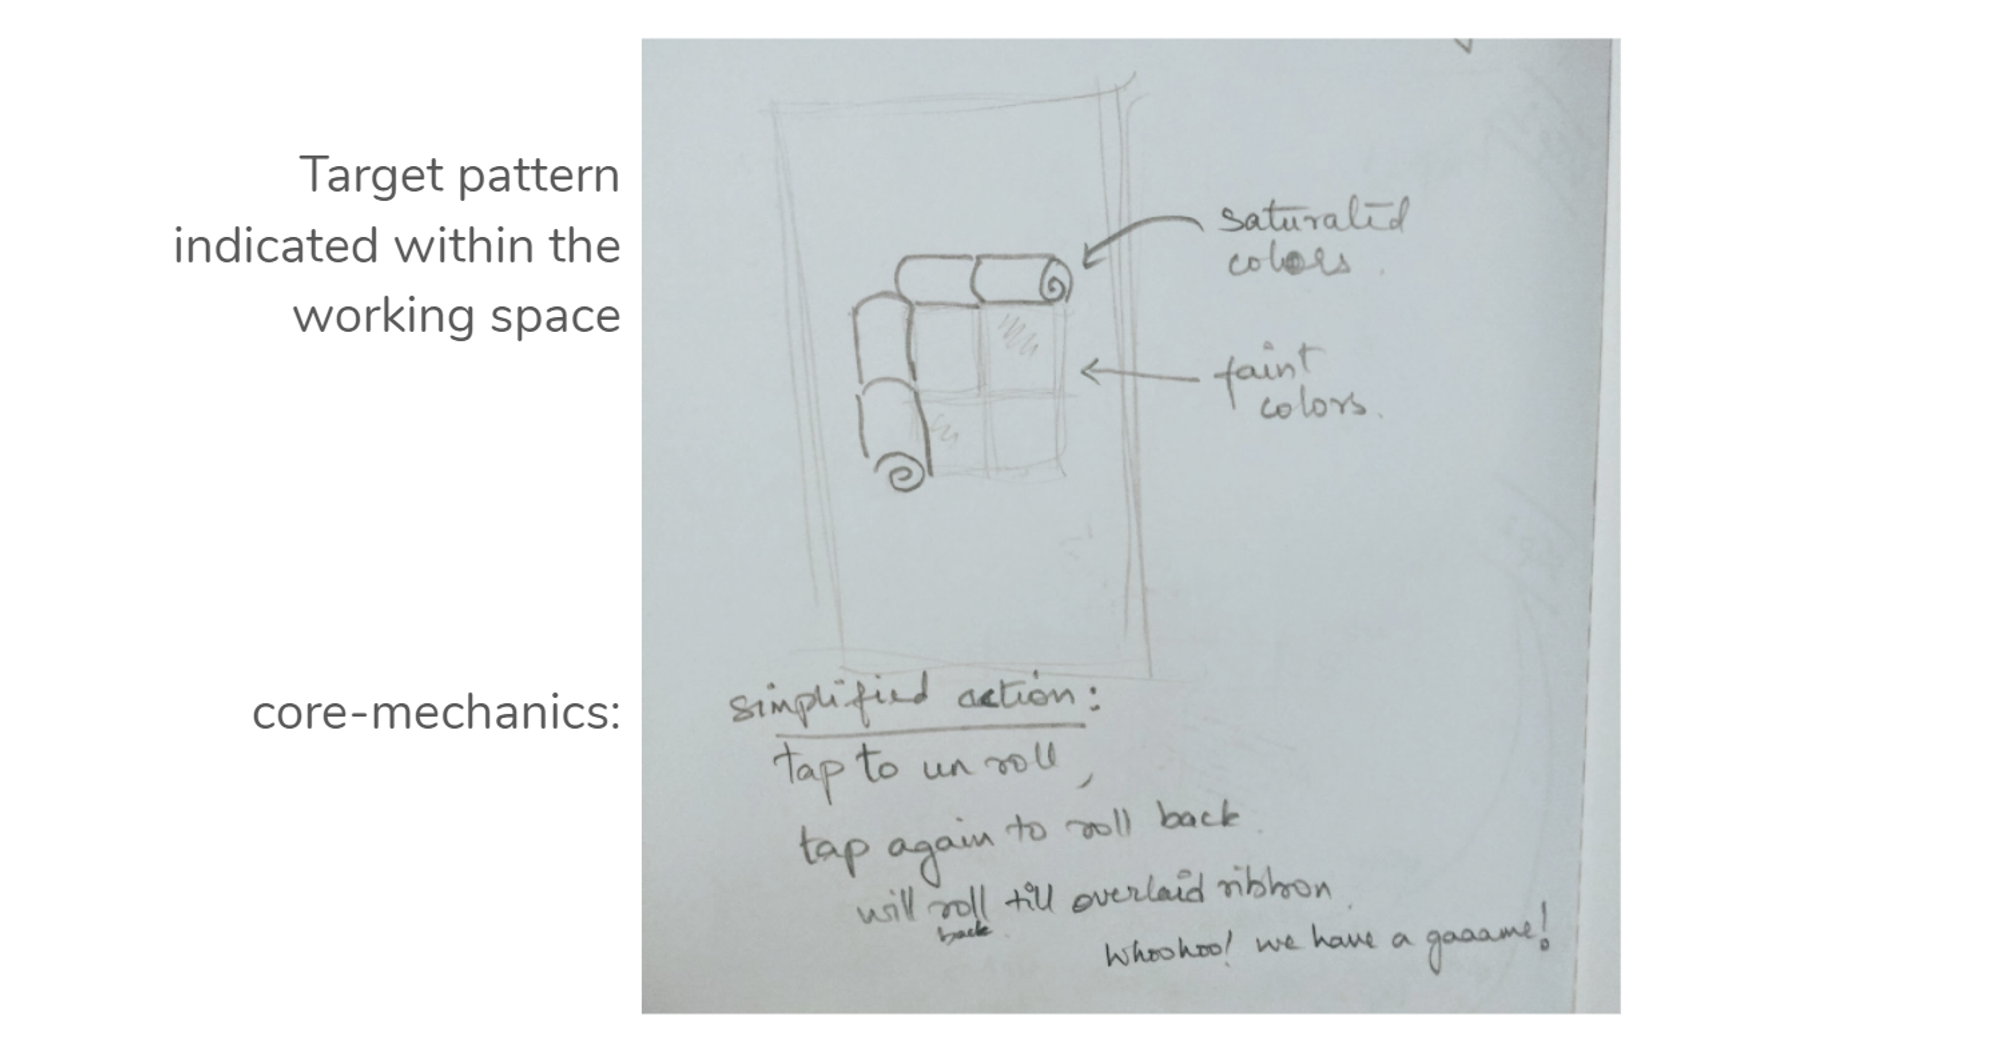 Target pattern
indicated within the
working space
saturated
colors.
faint
colors.
core-mechanics:
simplified action:
tap to un roll,
tap again to roll back.
will roll till overlaid ribbon.
back
Whoohoo! we have a gaaame!